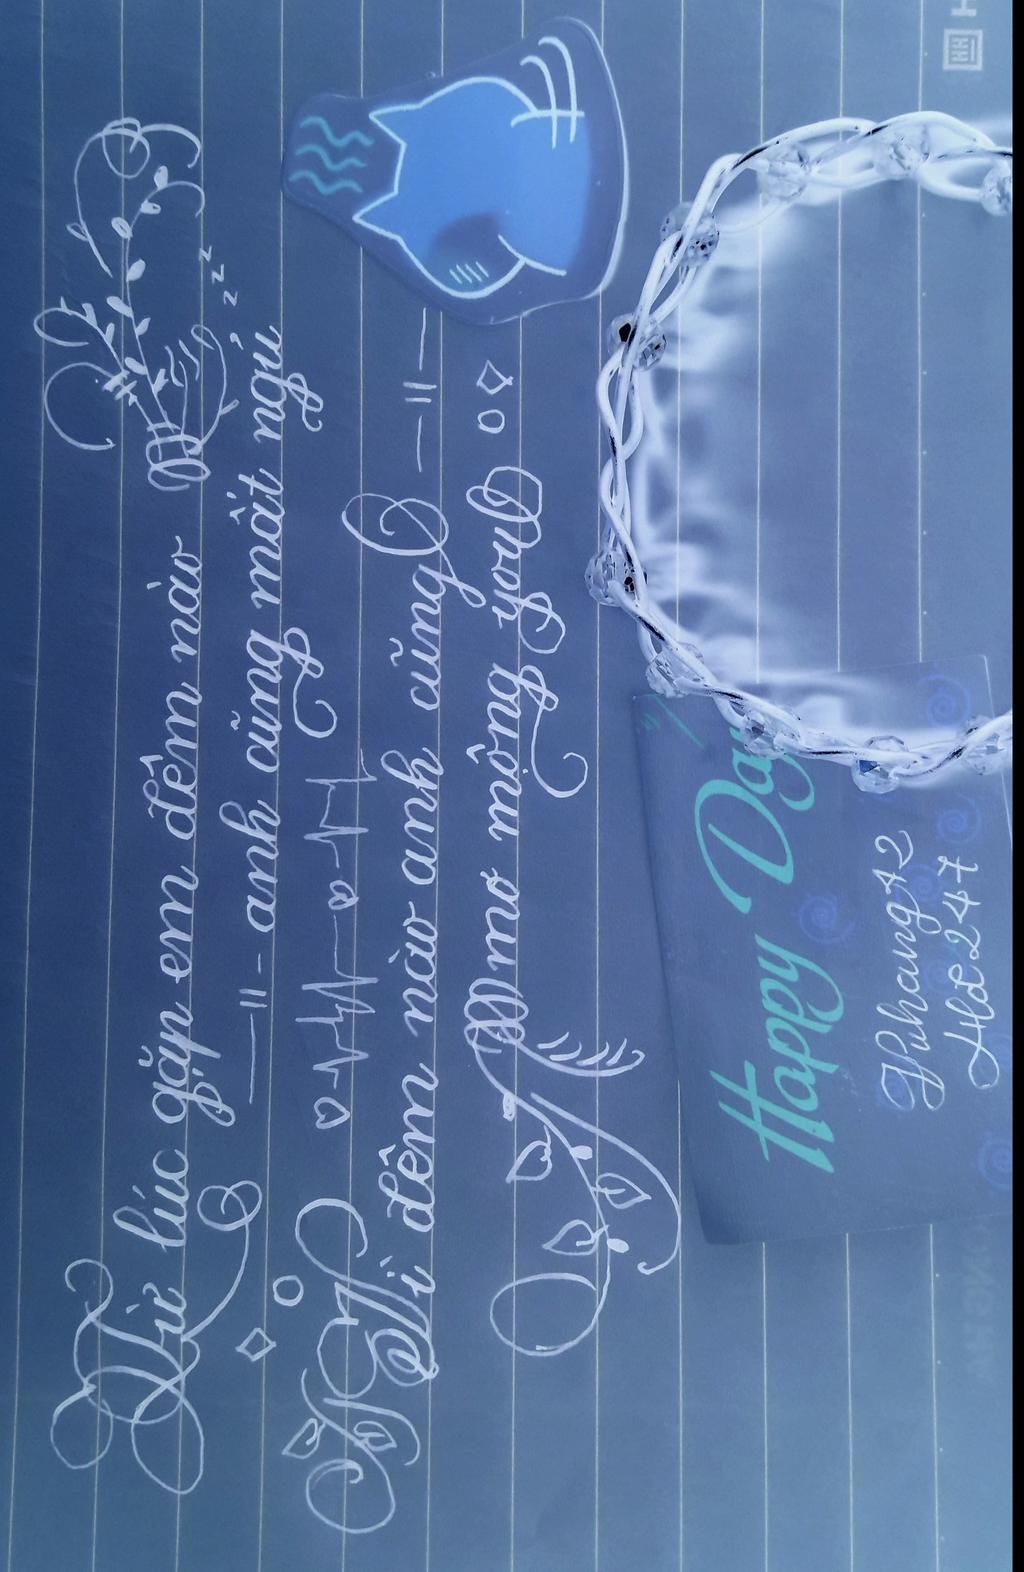 Từ lúc gặp em đêm nào
anh cũng mất ngủ
Vì đêm nào anh cũng
Mơ mộng you!
zzz
Happy Day